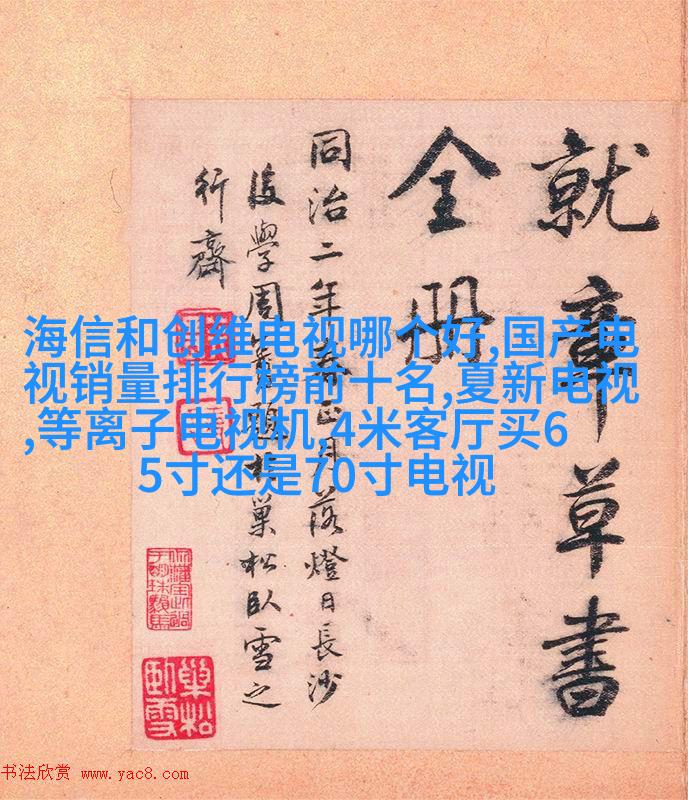 就章草書
全册
同治二年正月落燈日長沙
後學周巢松臥雪之
行齋
海信和创维电视哪个好,国产电
视销量排行榜前十名,夏新电视
,等离子电视机,4米客厅买6
5寸还是70寸电视
巢松
臥雪
书法欣赏 www.yac8.com